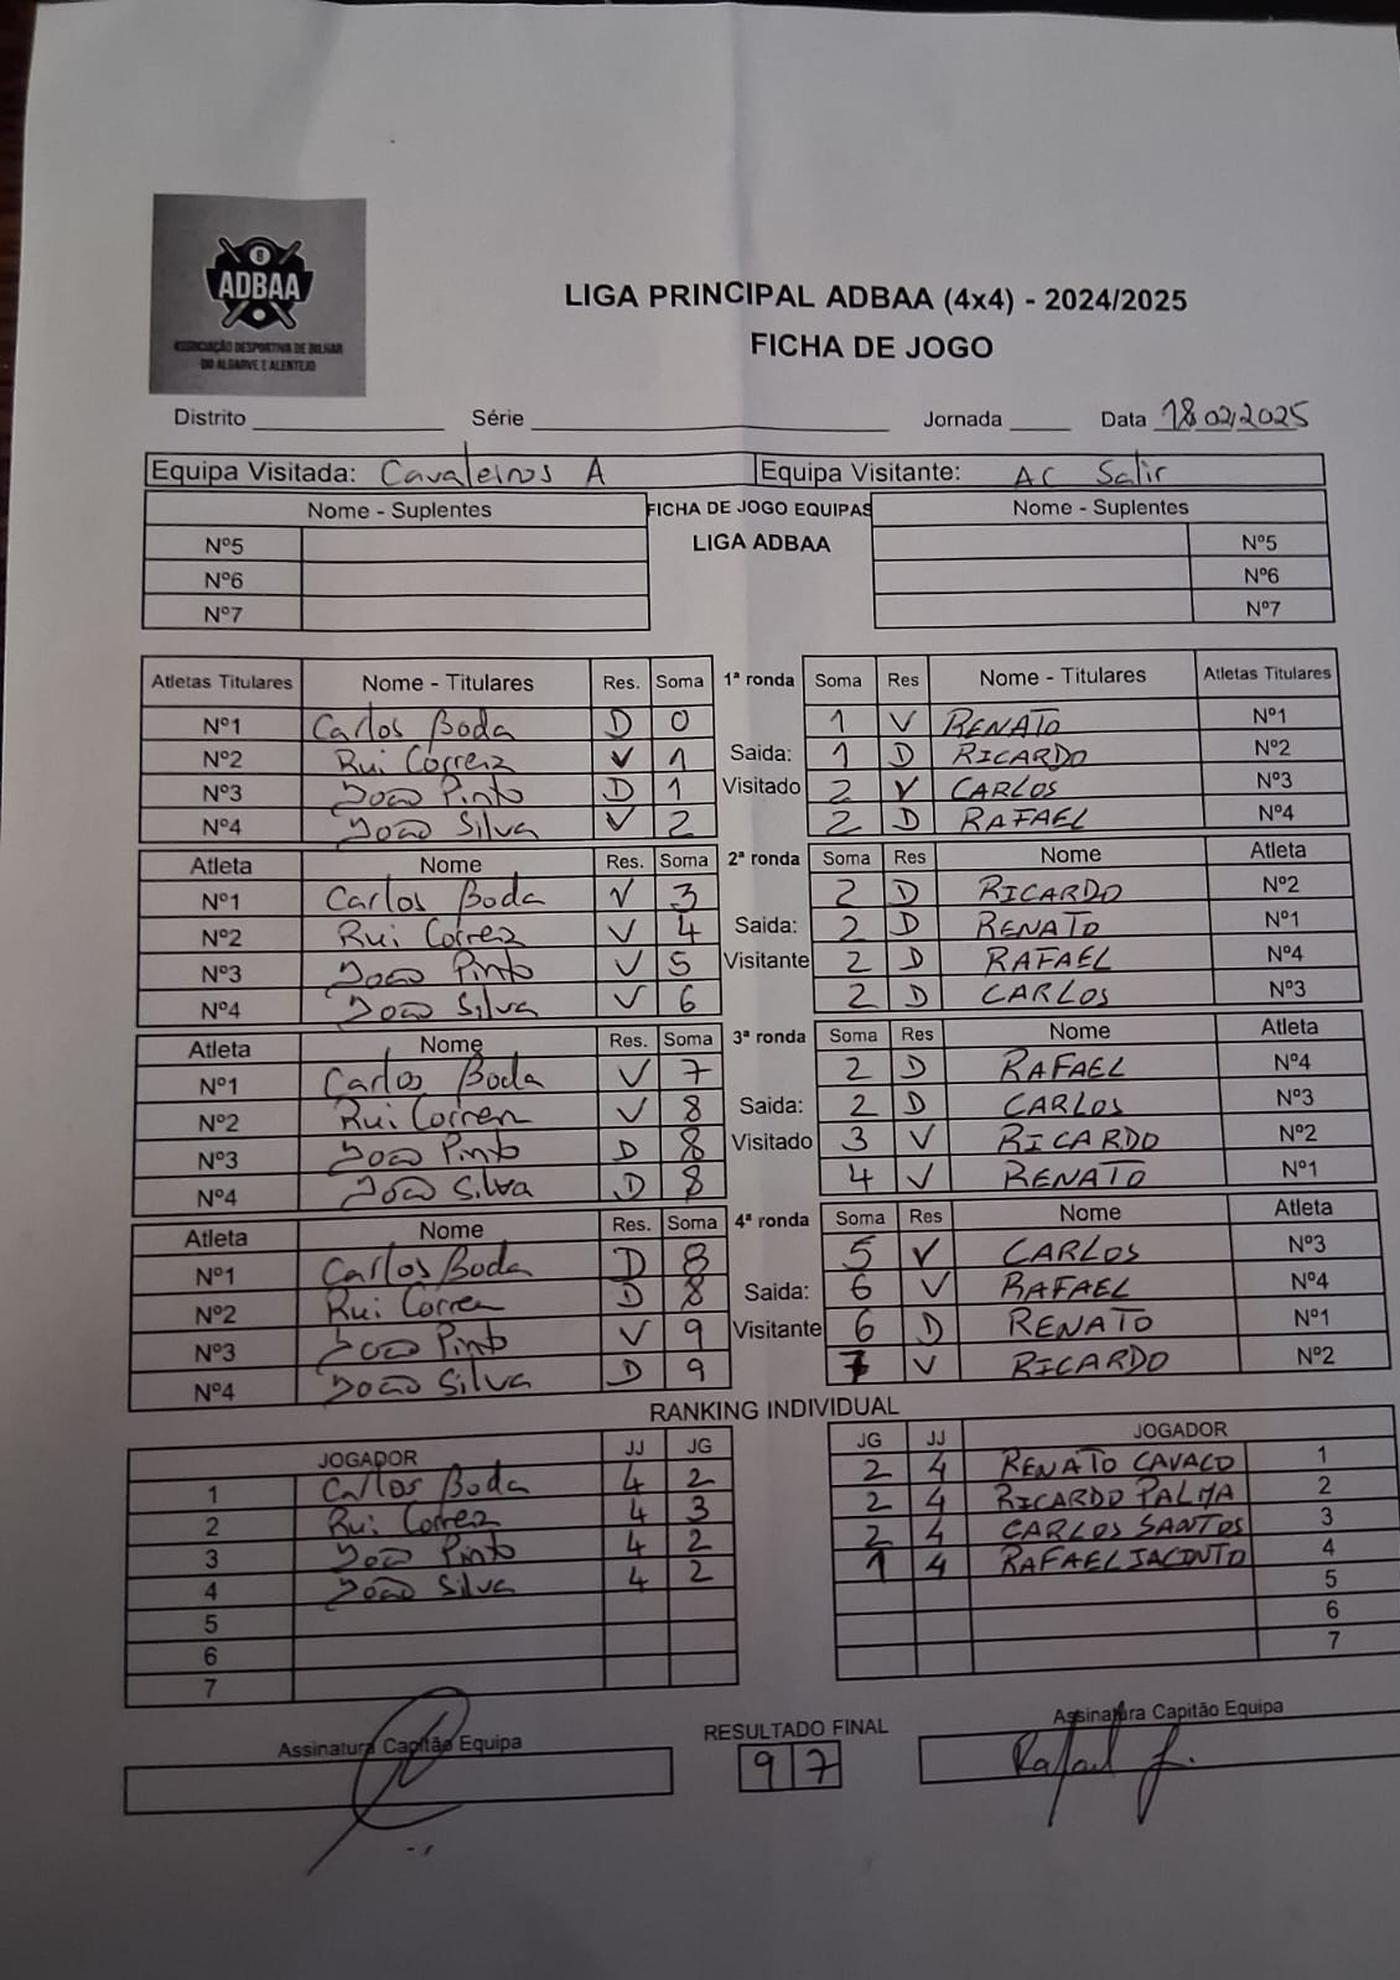 8
ADBAA
ASSOCIAÇÃO DESPORTIVA DE BILHAR
DO ALGARVE E ALENTEJO
LIGA PRINCIPAL ADBAA (4x4) - 2024/2025
FICHA DE JOGO
Distrito Série Jornada Data 18 02/2025
Equipa Visitada: Cavaleiros A Equipa Visitante: AC Salir
Nome - Suplentes FICHA DE JOGO EQUIPAS Nome - Suplentes
Nº5 LIGA ADBAA Nº5
Nº6 Nº6
Nº7 Nº7
Atletas Titulares Nome - Titulares Res. Soma 1ª ronda Soma Res Nome - Titulares Atletas Titulares
Nº1 Carlos Boda D 0 1 V RENATO Nº1
Nº2 Rui Correia V 1 Saida: 1 D RICARDO Nº2
Nº3 João Pinto D 1 Visitado 2 V CARLOS Nº3
Nº4 João Silva V 2 2 D RAFAEL Nº4
Atleta Nome Res. Soma 2ª ronda Soma Res Nome Atleta
Nº1 Carlos Boda V 3 2 D RICARDO Nº2
Nº2 Rui Correia V 4 Saida: 2 D RENATO Nº1
Nº3 João Pinto V 5 Visitante 2 D RAFAEL Nº4
Nº4 João Silva V 6 2 D CARLOS Nº3
Atleta Nome Res. Soma 3ª ronda Soma Res Nome Atleta
Nº1 Carlos Boda V 7 2 D RAFAEL Nº4
Nº2 Rui Correia V 8 Saida: 2 D CARLOS Nº3
Nº3 João Pinto D 8 Visitado 3 V RICARDO Nº2
Nº4 João Silva D 8 4 V RENATO Nº1
Atleta Nome Res. Soma 4ª ronda Soma Res Nome Atleta
Nº1 Carlos Boda D 8 5 V CARLOS Nº3
Nº2 Rui Correia D 8 Saida: 6 V RAFAEL Nº4
Nº3 João Pinto V 9 Visitante 6 D RENATO Nº1
Nº4 João Silva D 9 7 V RICARDO Nº2
RANKING INDIVIDUAL
JOGADOR JJ JG JG JJ JOGADOR
1 Carlos Boda 4 2 2 4 RENATO CAVACO 1
2 Rui Correia 4 3 2 4 RICARDO PALMA 2
3 João Pinto 4 2 2 4 CARLOS SANTOS 3
4 João Silva 4 2 1 4 RAFAEL JACINTO 4
5 5
6 6
7 7
Assinatura Capitão Equipa RESULTADO FINAL Assinatura Capitão Equipa
9 7 Rafael J.